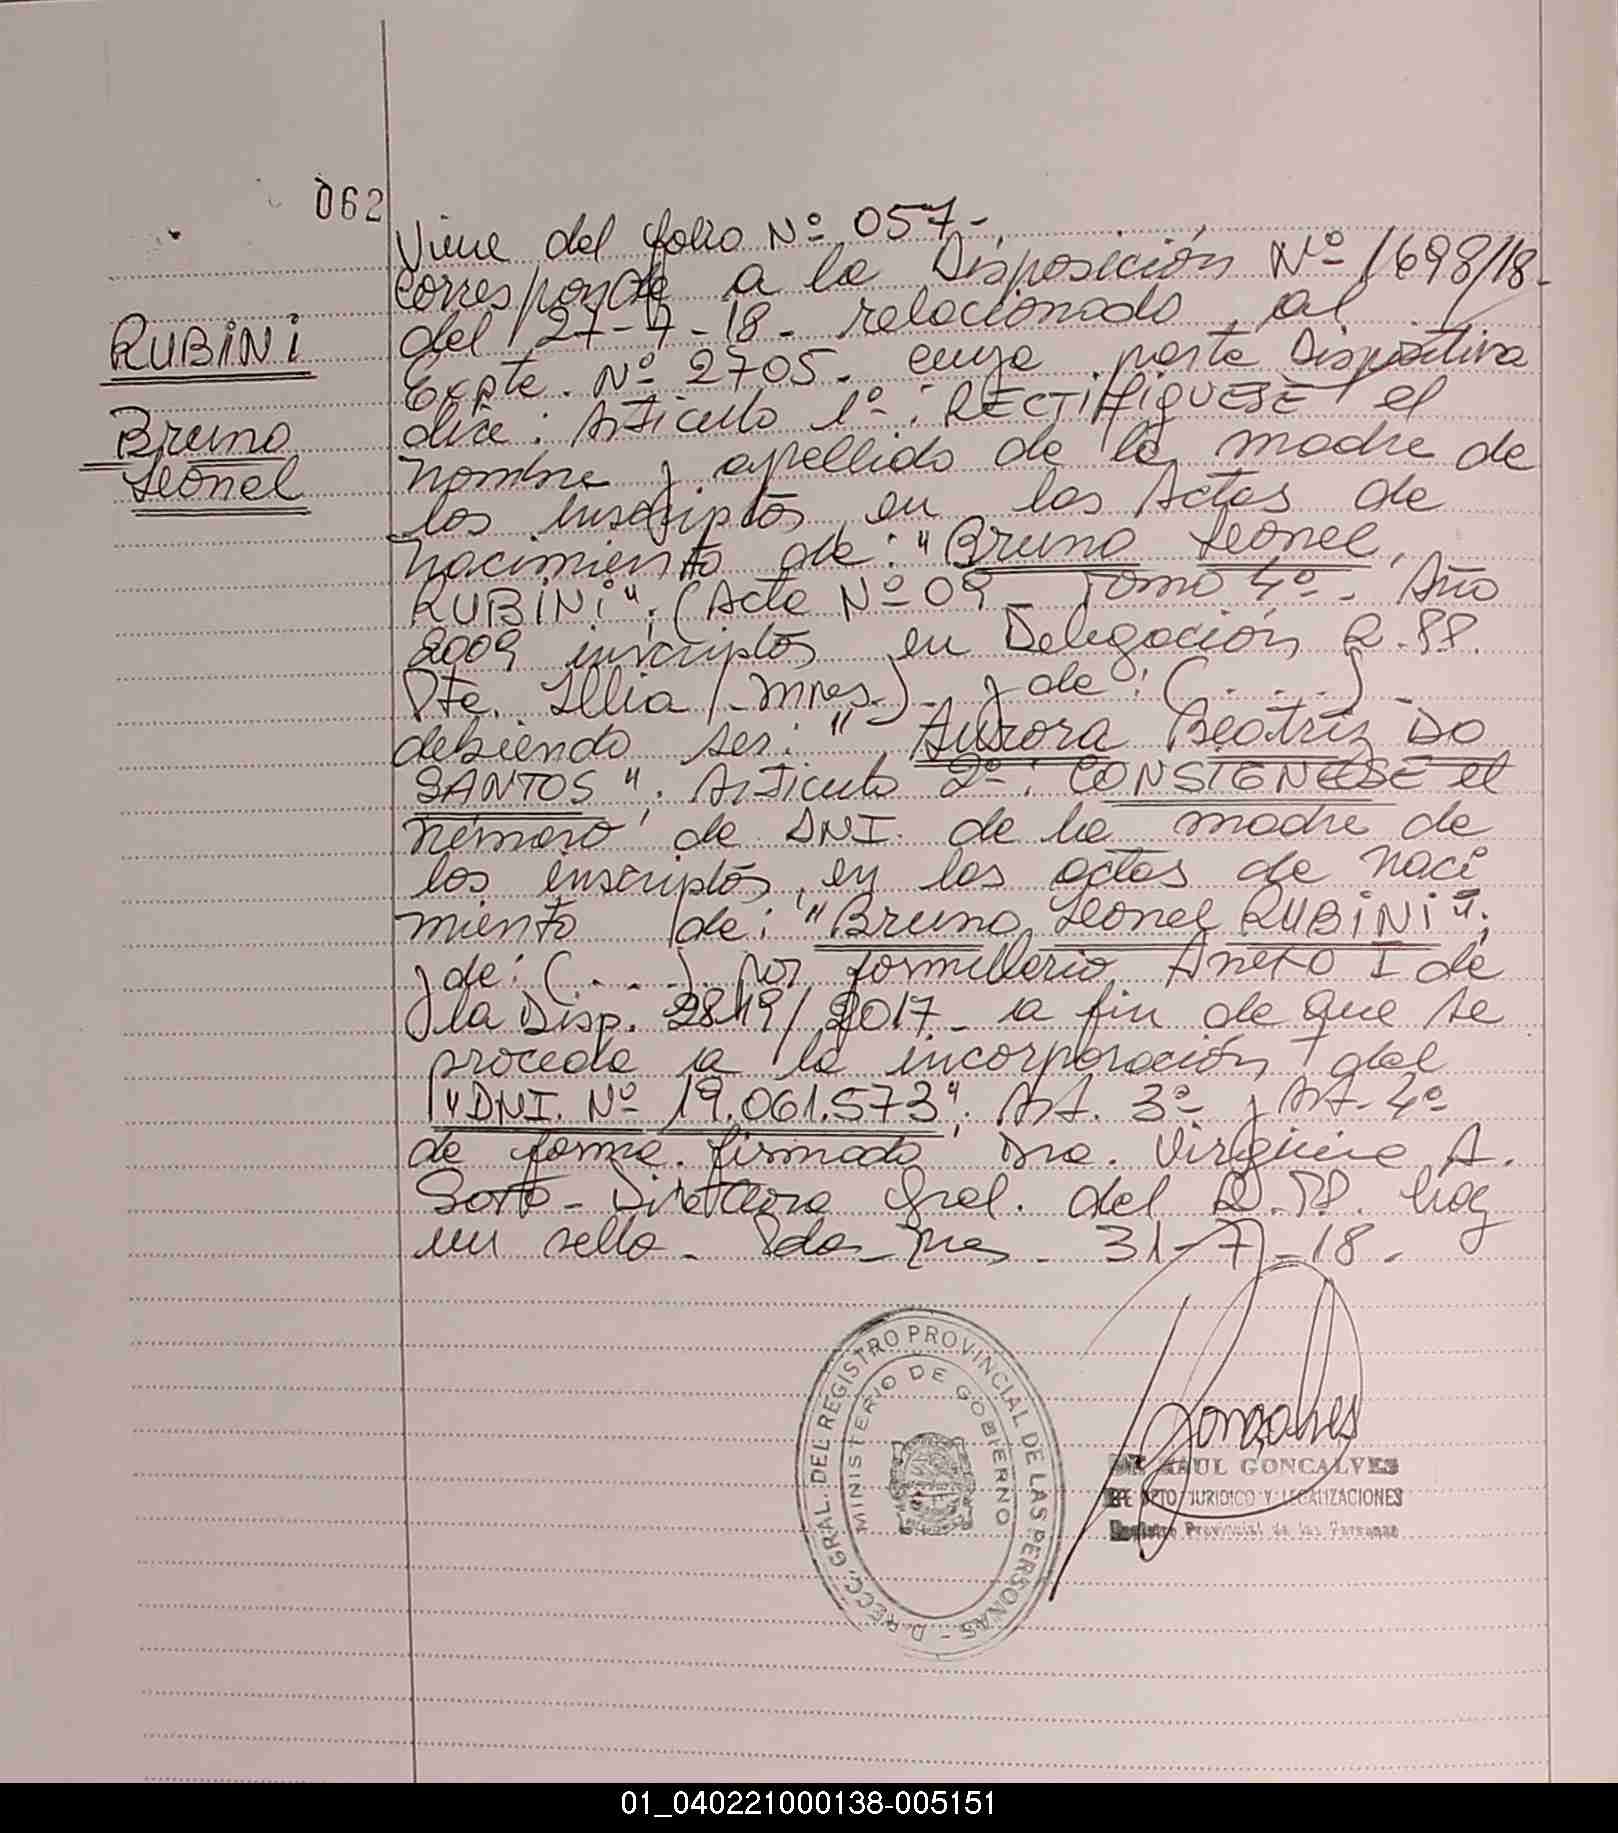 062
RUBINI
Bruno
Leonel
Viene del folio Nº 057-
corresponde a la Disposición Nº 1698/18-
del 27-7-18- relacionado al
Expte. Nº 2705- cuya parte Dispositiva
dice: Articulo 1º: RECTIFIQUESE el
nombre y apellido de la madre de
los inscriptos en las Actas de
nacimiento de: "Bruno Leonel
RUBINI"; (Acta Nº 09 - Tomo 4º- Año
2009 inscriptos en Delegación R.PP.
Pte. Illia (-Mnes.)- y de: (.....)-
debiendo ser: " Aurora Beatriz DO
SANTOS". Articulo 2º: CONSIGNESE el
número de DNI. de la madre de
los inscriptos en las actas de naci
miento de: "Bruno Leonel RUBINI";
y de: (....) por formulario Anexo I de
la Disp. 2819/2017- a fin de que se
proceda a la incorporación del
"DNI. Nº 19.061.573". Art. 3º y Art. 4º
de forma. firmado Dra. Virginia A.
Soto- Directora Gral. del R.PP. hay
un sello- Pdas-Mnes- 31-7-18-
DIRECC. GRAL. DEL REGISTRO PROVINCIAL DE LAS PERSONAS -
MINISTERIO DE GOBIERNO
Gonçalves
RAUL GONCALVES
DPTO JURIDICO Y LEGALIZACIONES
Registro Provincial de las Personas
01_040221000138-005151